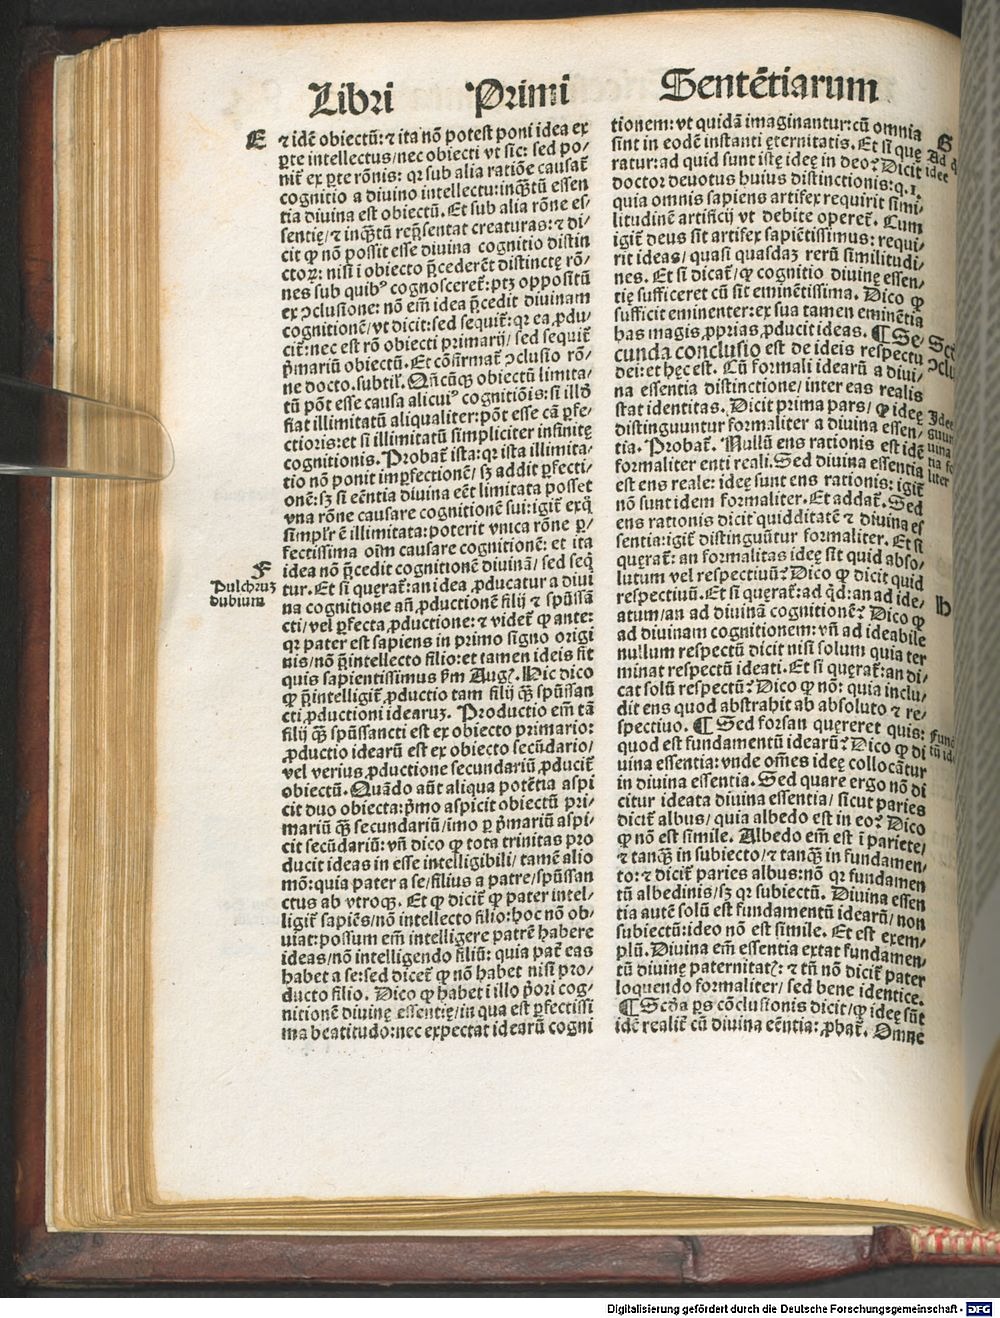 Libri Primi Sentētiarum
E
⁊ idē obiectū: ⁊ ita nō potest poni idea ex
ꝑte intellectus/ nec obiecti vt sic: sed po-
nit̄ ex ꝑte rōnis: qꝛ sub alia ratiōe causat̄
cognitio a diuino intellectu: inq̄ꝫtū essen
tia diuina est obiectū. Et sub alia rōne es/
sentię/ ⁊ inq̄ꝫtū repn̄sentat creaturas: ⁊ di/
cit ꝙ nō possit esse diuina cognitio distin
ctoꝝ: nisi ī obiecto p̄cederēt distinctę rō/
nes sub quibꝰ cognosceret̄: ptꝫ oppositū
ex ꝯclusione: nō em̄ idea p̄cedit diuinam
cognitionē/ vt dicit: sed sequit̄: qꝛ ea ꝓdu/
cit̄: nec est rō obiecti primarij/ sed sequit̄
p̄mariū obiectū. Et cōfirmat̄ ꝯclusio rō/
ne docto. subtil̓. Qn̄cūqꝫ obiectū limita/
tū pōt esse causa alicuiꝰ cognitiōis: si illd̓
fiat illimitatū aliqualiter: pōt esse cā ꝑfe/
ctioris: et si illimitatū simpliciter infinitę
cognitionis. Probat̄ ista: qꝛ ista illimita/
tio nō ponit imꝑfectionē/ sꝫ addit ꝑfecti/
onē: sꝫ si eēntia diuina eēt limitata posset
vna rōne causare cognitionē sui: igit̄ exq̄
simplr̓ ē illimitata: poterit vnica rōne ꝑ/
fectissima oīm causare cognitionē: et ita
idea nō p̄cedit cognitionē diuinā/ sed seq̄
F
Pulchruꝫ
dubium
tur. Et si quęrat̄: an idea ꝓducatur a diui
na cognitione an̄ ꝓductionē filij ⁊ spūssā
cti/ vel ꝑfecta ꝓductione: ⁊ videt̄ ꝙ ante:
qꝛ pater est sapiens in primo signo origi
nis/ nō p̄intellecto filio: et tamen ideis sit
quis sapientissimus ẜm Augꝭ. Hic dico
ꝙ p̄intelligit̄ ꝓductio tam filij q̄ꝫ spūssan
cti ꝓductioni idearuꝫ. Productio em̄ tā
filij q̄ꝫ spūssancti est ex obiecto primario:
ꝓductio idearū est ex obiecto secūdario/
vel verius ꝓductione secundariū ꝓducit̄
obiectū. Quādo aūt aliqua potētia aspi
cit duo obiecta: p̄mo aspicit obiectū pri/
mariū q̄ꝫ secundariū/ īmo ꝑ p̄mariū aspi/
cit secūdariū: vn̄ dico ꝙ tota trinitas pro
ducit ideas in esse intelligibili/ tamē alio
mō: quia pater a se/ filius a patre/ spūssan
ctus ab vtroqꝫ. Et ꝙ dicit̄ ꝙ pater intel/
ligit̄ sapiēs/ nō intellecto filio: hoc nō ob/
uiat: possum em̄ intelligere patrē habere
ideas/ nō intelligendo filiū: quia pat̄ eas
habet a se: sed dicet̄ ꝙ nō habet nisi pro/
ducto filio. Dico ꝙ habet ī illo p̄ori cog/
nitionē diuinę essentię/ in qua est ꝑfectissi
ma beatitudo: nec expectat idearū cogni
tionem: vt quidā imaginantur: cū omnia
sint in eodē instanti ęternitatis. Et si quę
ratur: ad quid sunt istę ideę in deo? Dicit
doctor deuotus huius distinctionis: q. 1.
quia omnis sapiens artifex requirit simi/
litudinē artificij vt debite operet̄. Cum
igit̄ deus sit artifex sapiētissimus: requi/
rit ideas/ quasi quasdaꝫ rerū similitudi/
nes. Et si dicat̄/ ꝙ cognitio diuinę essen/
tię sufficeret cū sit eminētissima. Dico ꝙ
sufficit eminenter: ex sua tamen eminētia
has magis ꝓprias ꝓducit ideas. ¶ Se/
cunda conclusio est de ideis respectu
dei: et hęc est. Cū formali idearū a diui/
na essentia distinctione/ inter eas realis
stat identitas. Dicit prima pars/ ꝙ ideę
distinguuntur formaliter a diuina essen/
tia. Probat̄. Nullū ens rationis est idē
formaliter enti reali. Sed diuina essentia
est ens reale: ideę sunt ens rationis: igit̄
nō sunt idem formaliter. Et addat̄. Sed
ens rationis dicit quidditatē ⁊ diuina es
sentia: igit̄ distinguūtur formaliter. Et si
quęrat̄: an formalitas ideę sit quid abso/
lutum vel respectiuū? Dico ꝙ dicit quid
respectiuū. Et si quęrat̄: ad q̄d: an ad ide/
atum/ an ad diuinā cognitionē? Dico ꝙ
ad diuinam cognitionem: vn̄ ad ideabile
nullum respectū dicit nisi solum quia ter
minat respectū ideati. Et si quęrat̄: an di/
cat solū respectū? Dico ꝙ nō: quia inclu/
dit ens quod abstrahit ab absoluto ⁊ re/
spectiuo. ¶ Sed forsan quęreret quis:
quod est fundamentū idearū? Dico ꝙ di
uina essentia: vnde om̄es ideę collocātur
in diuina essentia. Sed quare ergo nō di
citur ideata diuina essentia/ sicut paries
dicit̄ albus/ quia albedo est in eo? Dico
ꝙ nō est simile. Albedo em̄ est ī pariete/
⁊ tanq̄ꝫ in subiecto/ ⁊ tanq̄ꝫ in fundamen/
to: ⁊ dicit̄ paries albus: nō qꝛ fundamen
tū albedinis/ sꝫ qꝛ subiectū. Diuina essen
tia autē solū est fundamentū idearū/ non
subiectū: ideo nō est simile. Et est exem/
plū. Diuina em̄ essentia extat fundamen/
tū diuinę paternitatꝭ: ⁊ tn̄ nō dicit̄ pater
loquendo formaliter/ sed bene identice.
¶ Scd̓a ꝑs cōclusionis dicit/ ꝙ ideę sūt
idē realit̄ cū diuina eēntia: ꝓbat̄. Omne
G
Ad q
idee
Scd̓
ꝯclu
Idee
guūt
uina
tia fo
liter
H
Fund
tū id
Digitalisierung gefördert durch die Deutsche Forschungsgemeinschaft - DFG